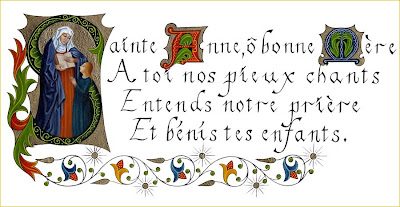 Sainte Anne, ô bonne Mère
A toi nos pieux chants
Entends notre prière
Et bénis tes enfants.